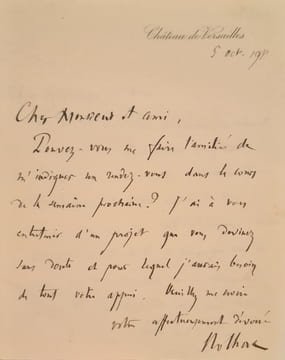 Château de Versailles
5 oct. 19
Cher Monsieur et ami,
Pouvez-vous me faire l'amitié de
m'indiquer un rendez-vous dans le cours
de la semaine prochaine ? J'ai à vous
entretenir d'un projet que vous devinez
sans doute et pour lequel j'aurais besoin
de tout votre appui. Veuillez me croire
votre affectueusement dévoué